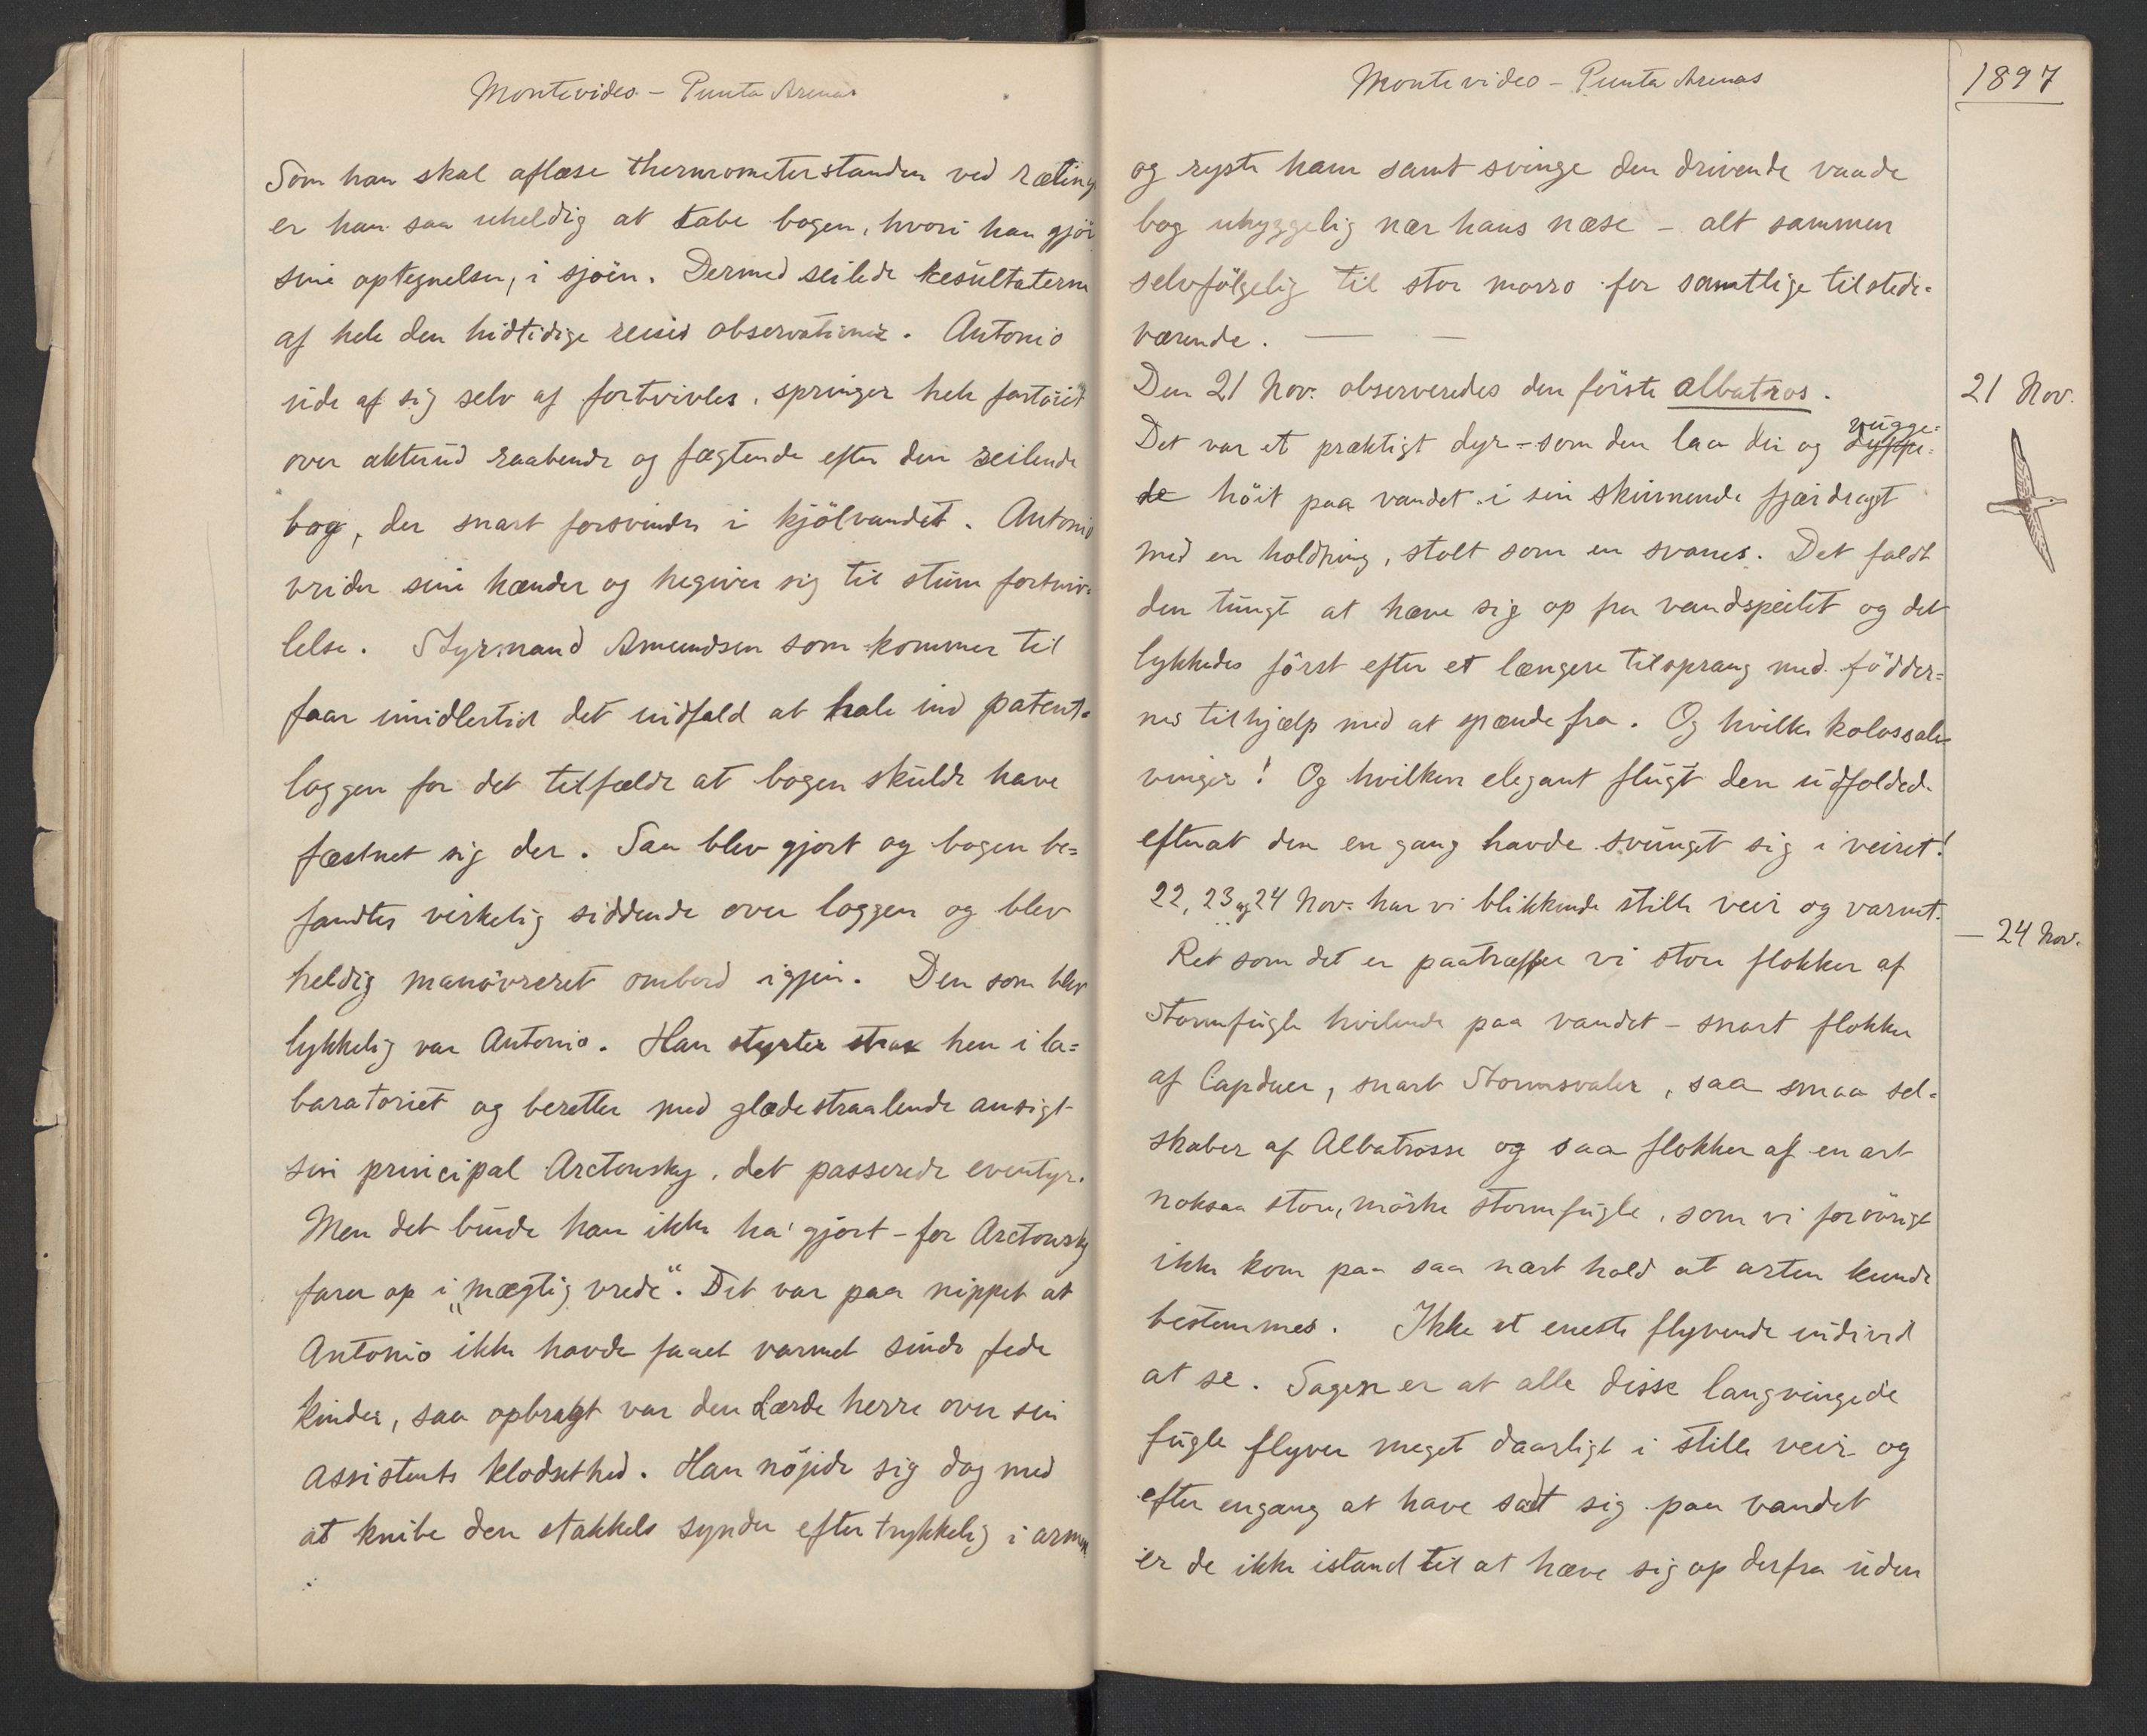 Montevideo - Punta Arenas
Som han skal aflæse thermometerstanden ved ræling
er han saa uheldig at tabe bogen, hvori han gjör
sine optegnelser, i sjöen. Dermed seilede resultaterne
af hele den hidtidige reises observationer. Antonio
ude af sig selv af fortvivles, springer hele fartöiet
over akterud raabende og fægtende efter den seilende
bog, der snart forsvinder i kjölvandet. Antonio
vrider sine hænder og hegiver sig til stum fortviv-
lelse. Styrmand Amundsen som kommer til
faar imidlertid det indfald at hale ind patent-
loggen for det tilfælde at bogen skulde have
fæstnet sig der. Saa blev gjort og bogen be-
fandtes virkelig siddende over loggen og blev
heldig manövreret ombord igjen. Den som blev
lykkelig var Antonio. Han styrter strax hen i la-
baratoriet og beretter med glædestraalende ansigt
sin principal Arctowsky, det passerede eventyr.
Men det burde han ikke ha' gjort - for Arctowsky
farer op i „mægtig vrede“. Det var paa nippet at
Antonio ikke havde faaet varmet sinde fede
kinder, saa opbragt var den Lærde herre over sin
assistents klodsethed. Han nöjede sig dog med
at knibe den stakkels synder eftertrykkelig i armen
Montevideo - Punta Arenas
1897
og ryste ham samt svinge den drivende vaade
bog uhyggelig nær hans næse - alt sammen
selvfölgelig til stor morro for samtlige tilstede-
værende. — -
Den 21 Nov. observeredes den förste albatros.
21 Nov.
Det var et prægtigt dyr - som den laa der og duppe- vugge-
de höit paa vandet i sin skinnende fjærdragt
med en holdning, stolt som en svanes. Det faldt
den tungt at hæve sig op fra vandspeilet og det
lykkedes först efter et længere tilsprang med födder-
nes tilhjælp med at spænde fra. Og hvilke kolossale
vinger! Og hvilken elegant flugt den udfoldede
efterat den en gang havde svunget sig i veiret!
22, 23 og 24 Nov. har vi blikkende stille veir og varmt.
- 24 Nov.
Ret som det er paatræffer vi store flokker af
Stormfugle hvilende paa vandet - snart flokker
af Capduer, snart Stormsvaler, saa smaa sel-
skaber af Albatrosse og saa flokker af en art
noksaa store, mörke stormfugle, som vi forövrigt
ikke kom paa saa nært hold at arten kunde
bestemmes. Ikke et eneste flyvende individ
at se. Sagen er at alle disse langvingede
fugle flyver meget daarligt i stille veir og
efter engang at have sadt sig paa vandet
er de ikke istand til at hæve sig op derfra uden